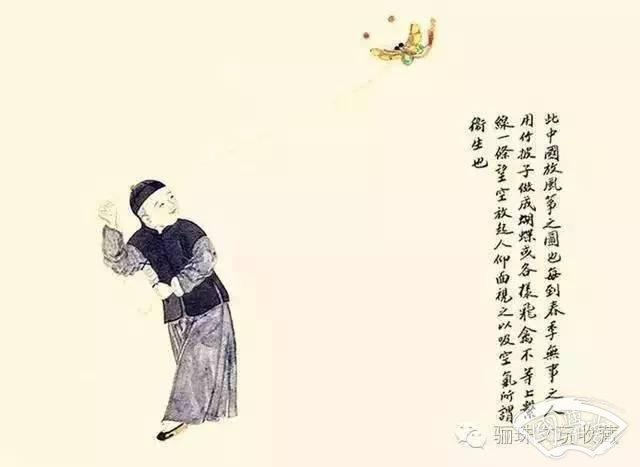 此中國放風箏之圖也每到春季無事之人
用竹披子做成蝴蝶或各樣飛禽不等上繫
線一條望空放起人仰面視之以吸空氣所謂
衞生也
骊珠文玩收藏